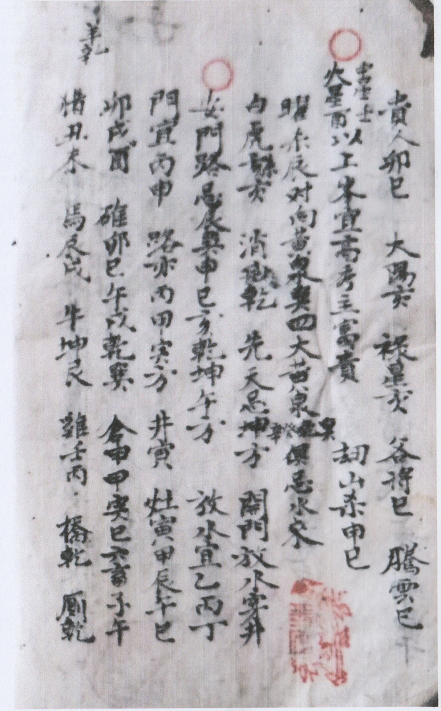 貴人卯巳 太陽亥 祿星亥 谷將巳 騰雲巳
火星酉以上峯宜高秀主富貴 劫山杀申巳
曜杀辰对向黃泉巽四大黃泉 俱忌水來
白虎 亥 消 乾 先天忌坤方 開門放水 井
安門路忌辰巽申巳亥乾坤午方 放水宜乙丙丁
門宜丙申 路亦丙甲寅方 井寅 灶寅甲辰午巳
卯戌酉 碓卯巳午戌乾巽 倉申甲寅巳 六畜子午
猪丑未 馬辰戌 牛坤艮 雞壬丙 橋乾 厠乾
羊乾